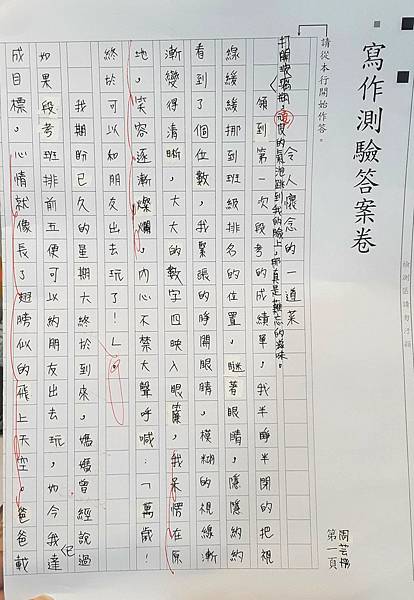 寫作測驗答案卷
檢測區請勿汙損
請從本行開始作答。
周芸
第一頁
令人懷念的一道菜
打開玻璃瓶，頑皮的氣泡跳到我的臉上，那真是難忘的滋味。
領到第一次段考的成績單，我半睜半閉的把視
線緩緩挪到班級排名的位置，瞇著眼睛，隱隱約約
看到了個位數，我緊張的睜開眼睛，模糊的視線漸
漸變得清晰，大大的數字四映入眼簾，我呆愣在原
地，笑容逐漸燦爛，內心不禁大聲呼喊：「萬歲！
終於可以和朋友出去玩了！」。
我期盼已久的星期六終於到來，媽媽曾經說過
如果段考班排前五便可以約朋友出去玩，如今我已達
成目標，心情就像長了翅膀似的飛上天空。爸爸載